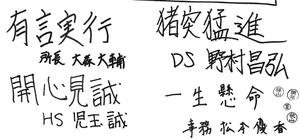 有言実行
所長 大森大輔
開心見誠
HS 児玉誠
猪突猛進
DS 野村昌弘
一生懸命
事務 松本優香